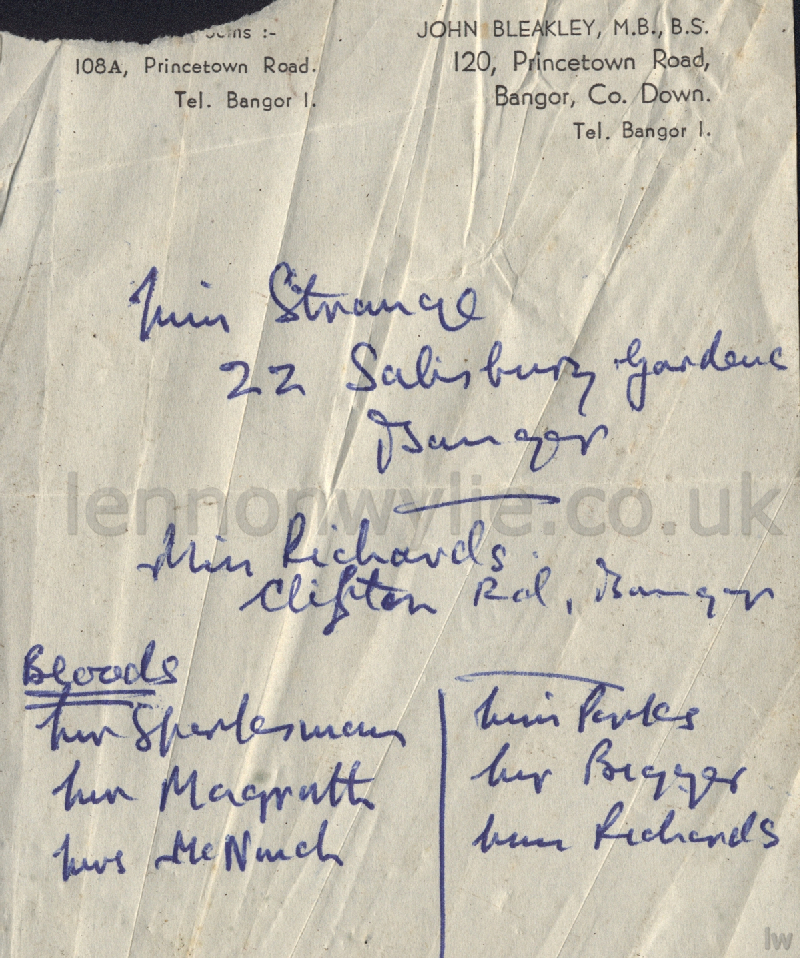 108A, Princetown Road.
Tel. Bangor 1.
JOHN BLEAKLEY, M.B., B.S.
120, Princetown Road,
Bangor, Co. Down.
Tel. Bangor 1.
Miss Strange
22 Salisbury Gardens
Bangor
lennonwylie.co.uk
Miss Richards.
Clifton Rd, Bangor
Bloods
Magrath
Mrs McNinch
Miss Parkes
Miss Richards
lw